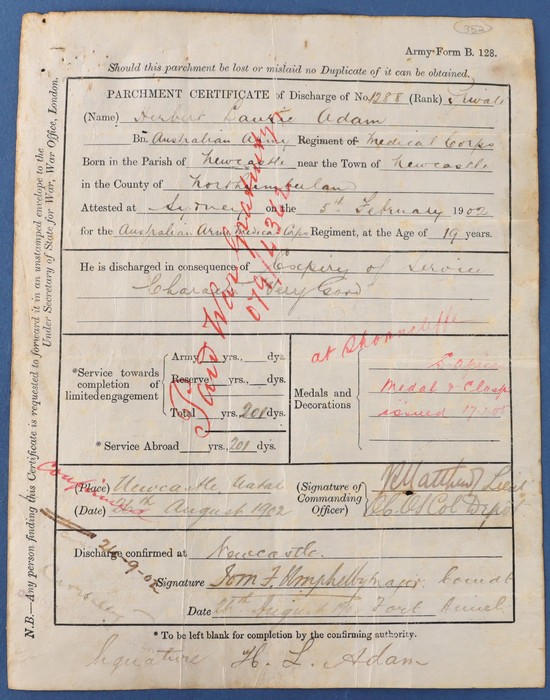 352
Army Form B. 128.
Should this parchment be lost or mislaid no Duplicate of it can be obtained.
PARCHMENT CERTIFICATE of Discharge of No. 1288 (Rank) Private
(Name) Herbert Laurie Adam
Bn. Australian Army Regiment of Medical Corps
Born in the Parish of Newcastle near the Town of Newcastle
in the County of Northumberland
Attested at Sydney on the 5th February 1902
for the Australian Army Medical Corps Regiment, at the Age of 19 years.
He is discharged in consequence of expiry of Service
Character Very Good
Paid War Gratuity
079/4362
*Service towards completion of limited engagement
Army yrs., dys.
Reserve yrs., dys.
Total yrs., 201 dys.
* Service Abroad yrs., 201 dys.
Medals and Decorations
at Shorncliffe
Medal & Clasps
issued
Confirmed
(Place) Newcastle, Natal
(Date) August 1902
(Signature of Commanding Officer) Matthews
Depot
26-9-02
Discharge confirmed at Newcastle.
Signature Major Comdt
Date August Fort
* To be left blank for completion by the confirming authority.
Signature H. L. Adam
N.B.—Any person finding this Certificate is requested to forward it in an unstamped envelope to the
Under Secretary of State for War, War Office, London.